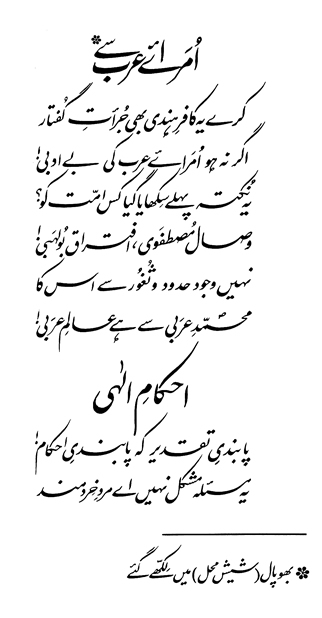 اُمَرائے عرب سے*
کرے یہ کافرِ ہندی بھی جُرأتِ گُفتار
اگر نہ ہو اُمَرائے عرب کی بے ادبی!
یہ نُکتہ پہلے سِکھایا گیا کس اُمّت کو؟
وصالِ مُصطفوی، افتراقِ بُولہبی!
نہیں وجود حدود و ثُغُور سے اس کا
محمّدِؐ عربی سے ہے عالمِ عربی!
احکامِ الٰہی
پابندیِ تقدیر کہ پابندیِ احکام!
یہ مسئلہ مشکل نہیں اے مردِ خِردمند
* بھوپال (شیش محل) میں لِکھّے گئے